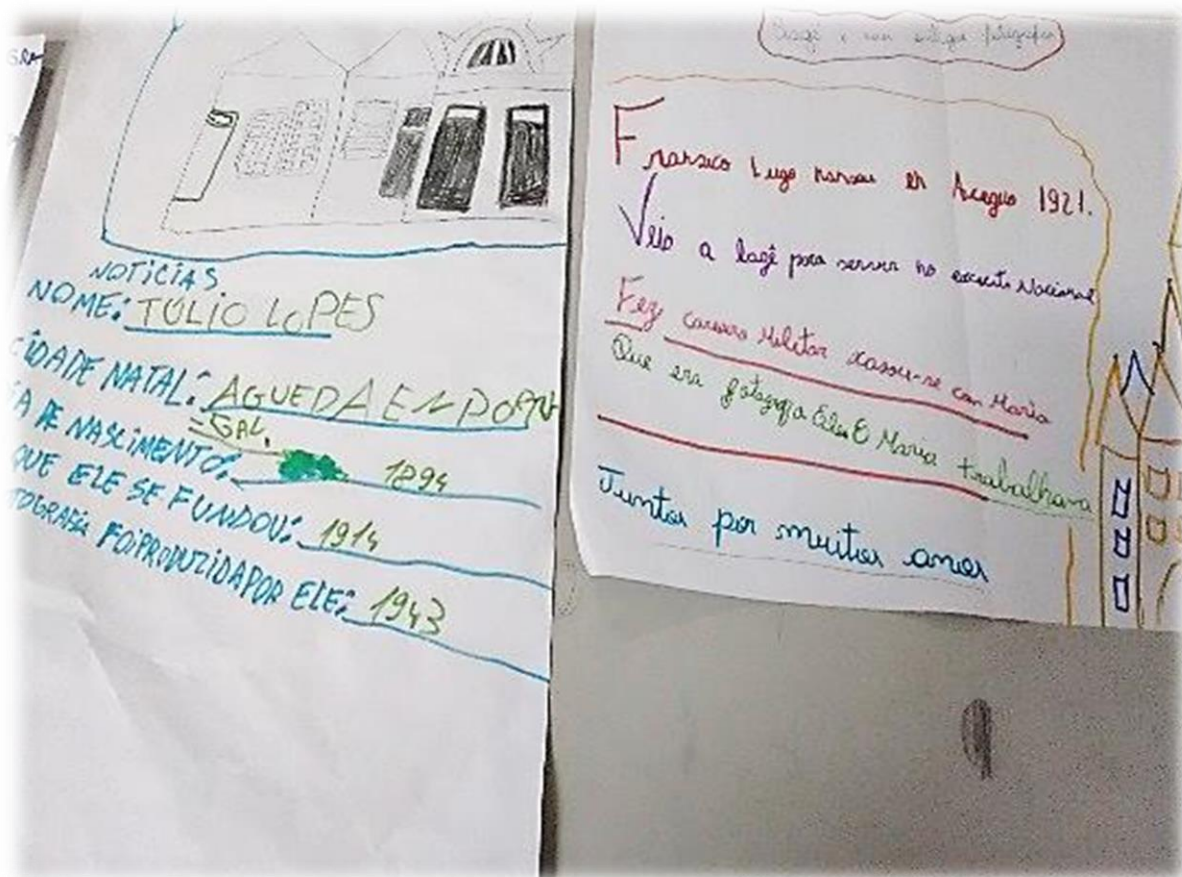 NOTICIAS
NOME: TÚLIO LOPES
CIDADE NATAL: AGUEDA EN PORTU
GAL.
A DE NASCIMENTO: 1894
QUE ELE SE FUNDOU: 1914
TOGRAFIA FOI PRODUZIDA POR ELE: 1943
Bagé e seus antigos fotógrafos
Fransico Lugo nanseu en Acegua 1921.
Veio a bagé para servir no exercito Nacional
Fez carreira Militar casou-se com Maria
Que era fotografa Ele E Maria trabalhava
Juntos por muitos anos